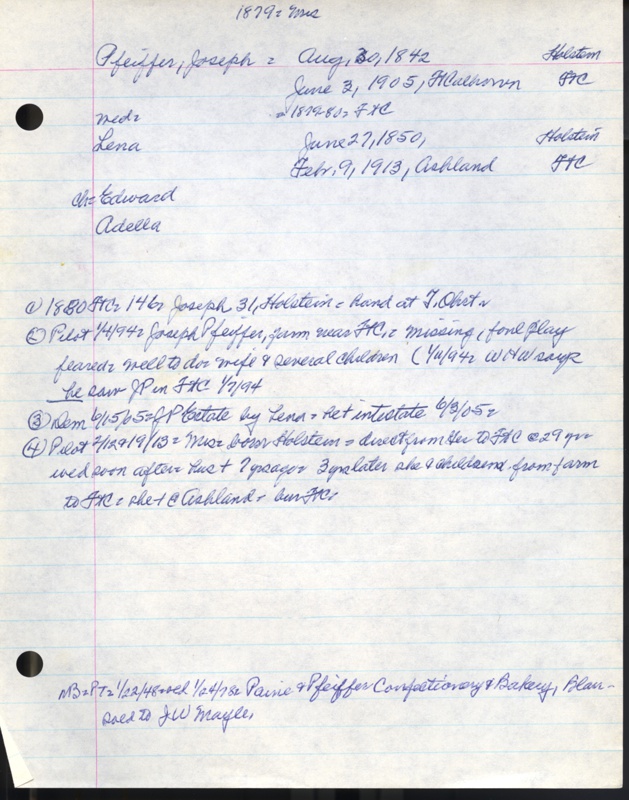 1879 = Mrs
Pfeiffer, Joseph = Aug, 30, 1842 Holstein
June 3, 1905, FtCalhoun FtC
med =
= 1879-80 = FtC
Lena June 27, 1850, Holstein
Febr. 9, 1913, Ashland FtC
ch = Edward
Adella
① 1880 FtC = 146 = Joseph 31, Holstein = hand at
② Pilot 1/4/94 = Joseph Pfeiffer, farm near FtC, = missing, foul play
feared = well to do = wife & several children (1/11/94 = W says
he saw JP in FtC 1/7/94
③ Dem 6/15/05 = JP Estate by Lena = he + intestate 6/3/05 =
④ Pilot 2/12 & 19/13 = Mrs = born Holstein = direct from to FtC @ 29 yr =
wed soon after = hus + 7 yrs ago = 3 yrs later she & children from farm
to FtC = she + @ Ashland = bur FtC =
NB = PT = 1/22/48 = 1/24/78 = Paine & Pfeiffer Confectionery & Bakery, Blair -
sold to JW